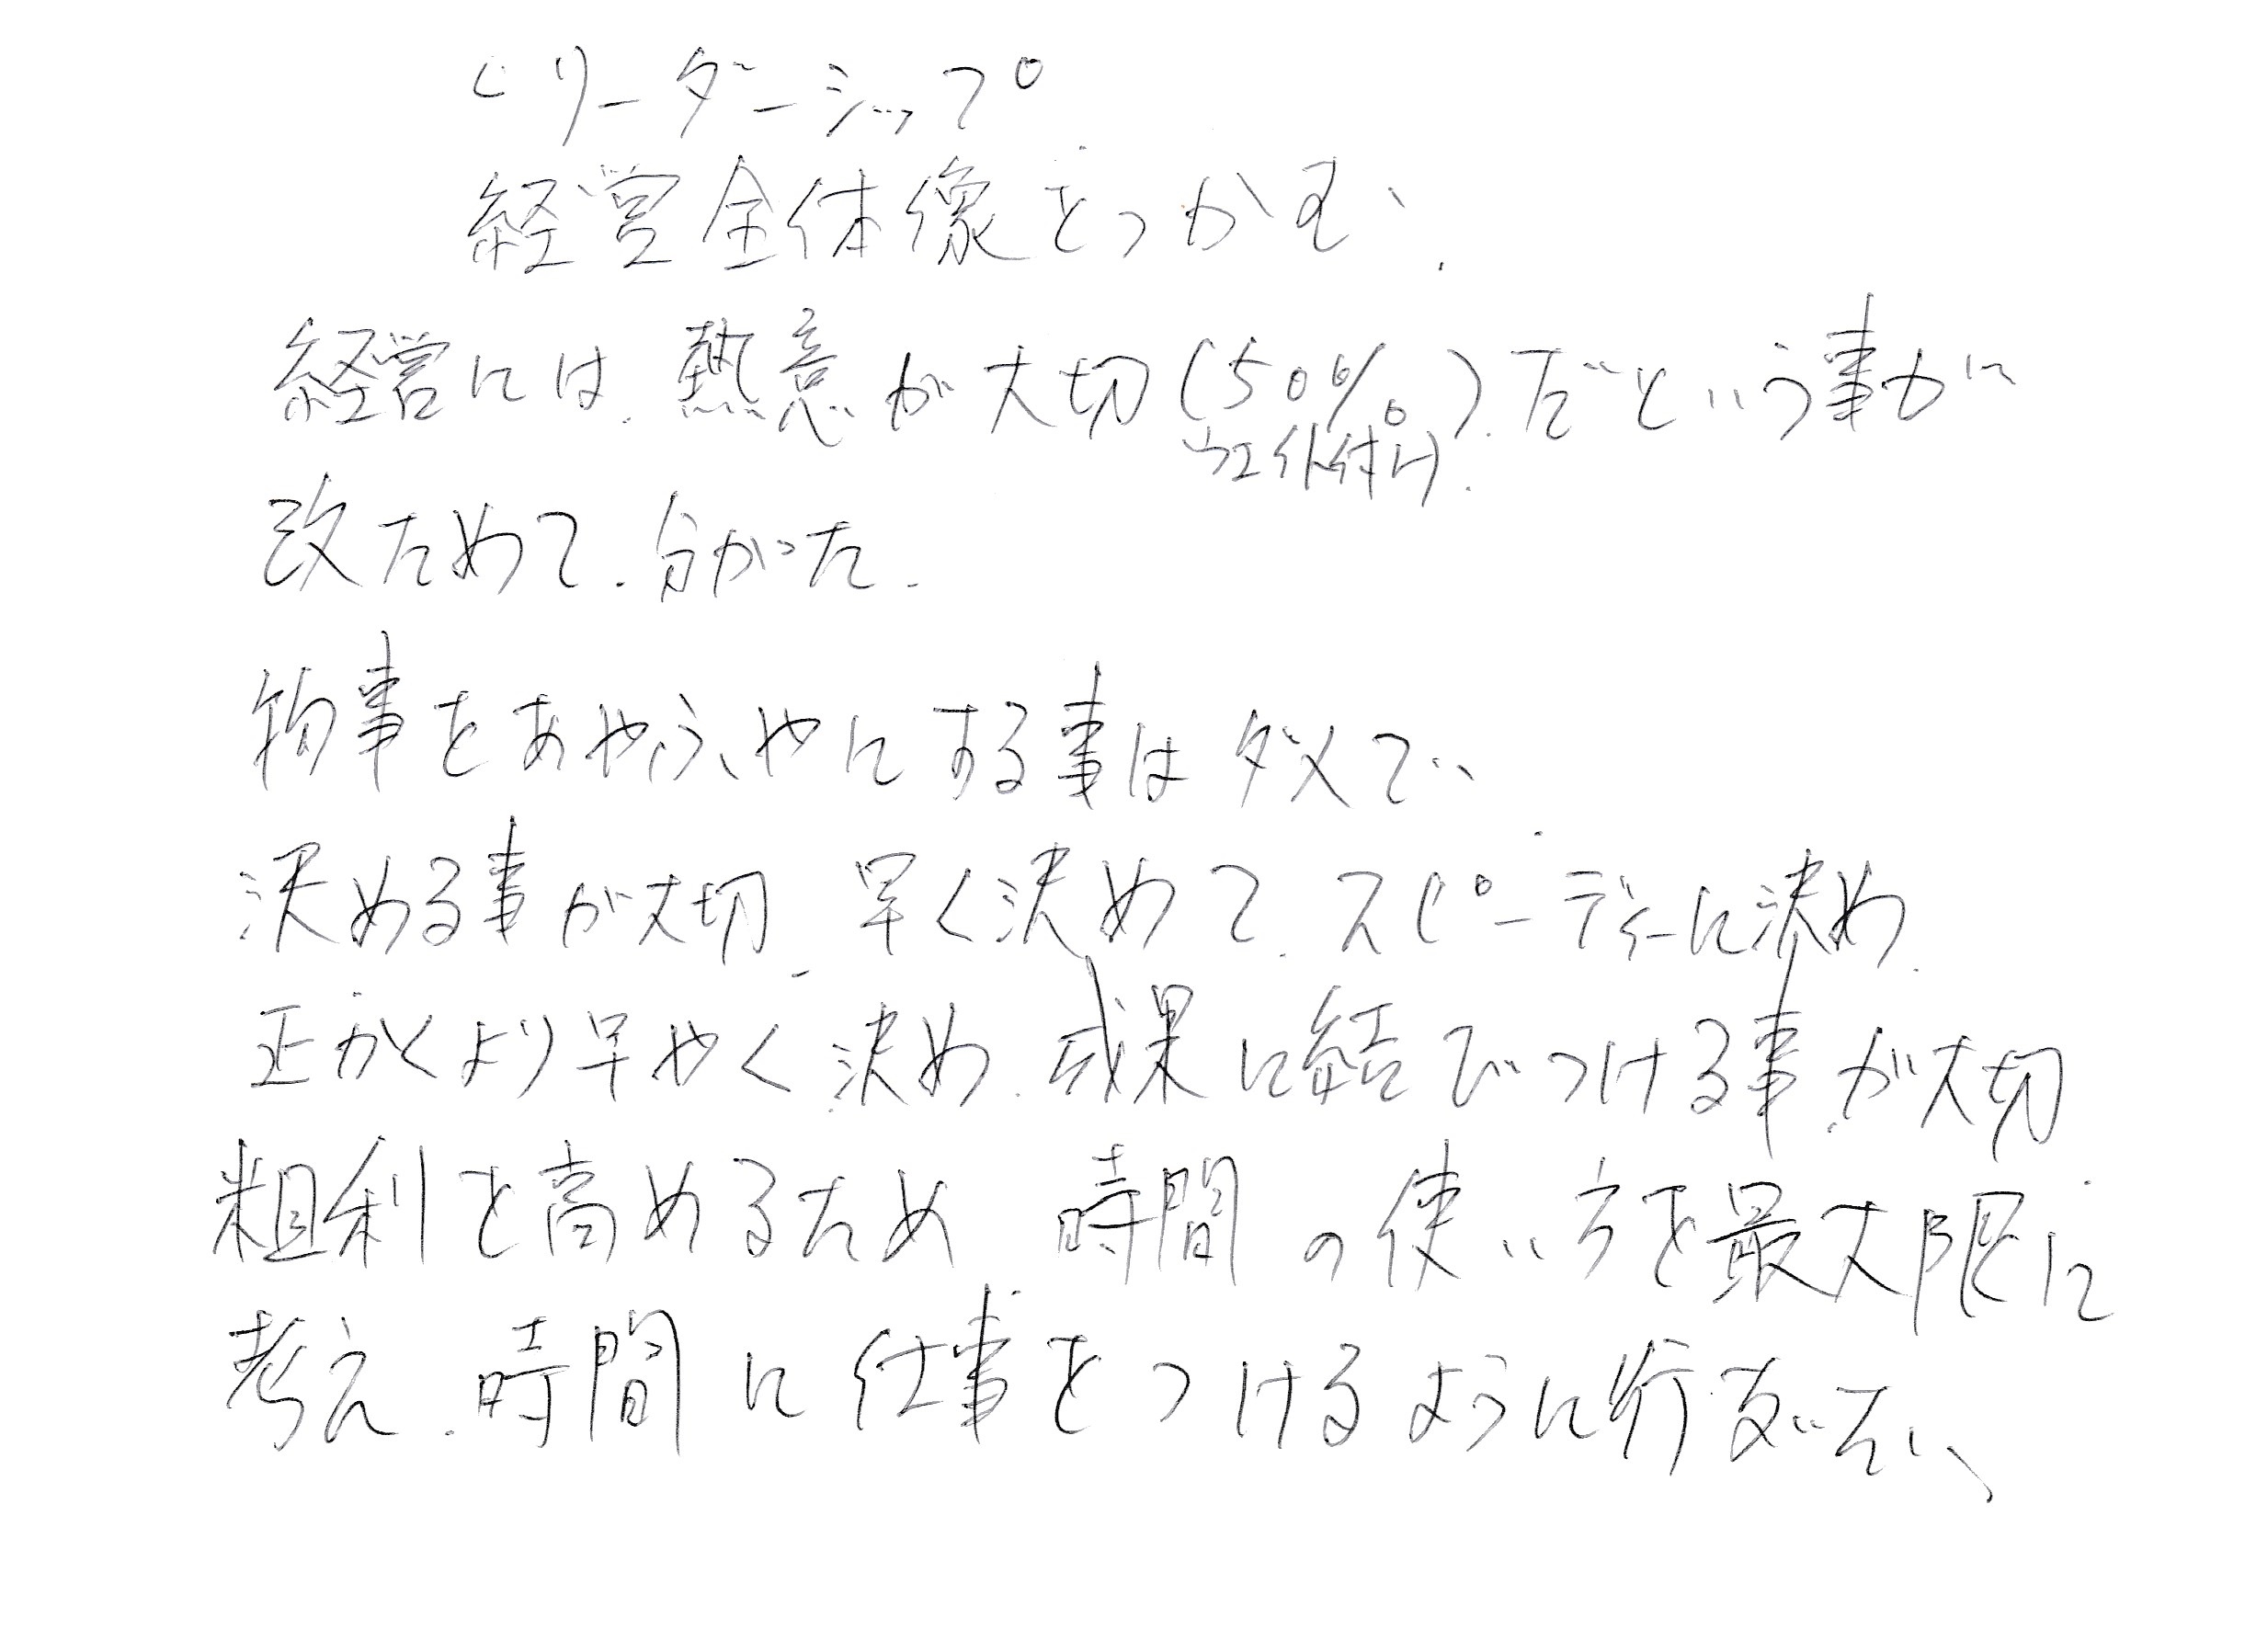 リーダーシップ
経営全体像をつかむ.
経営には.熱意が大切(50%).だという事が
ウエイト付け.
改ためて.分かった.
物事をあやふやにする事はダメで
決める事が大切.早く決めて.スピーディーに決め.
正かくより早やく決め.成果に結びつける事が大切
粗利を高めるため 時間の使い方を最大限に
考え.時間に仕事をつけるように行ないたい、